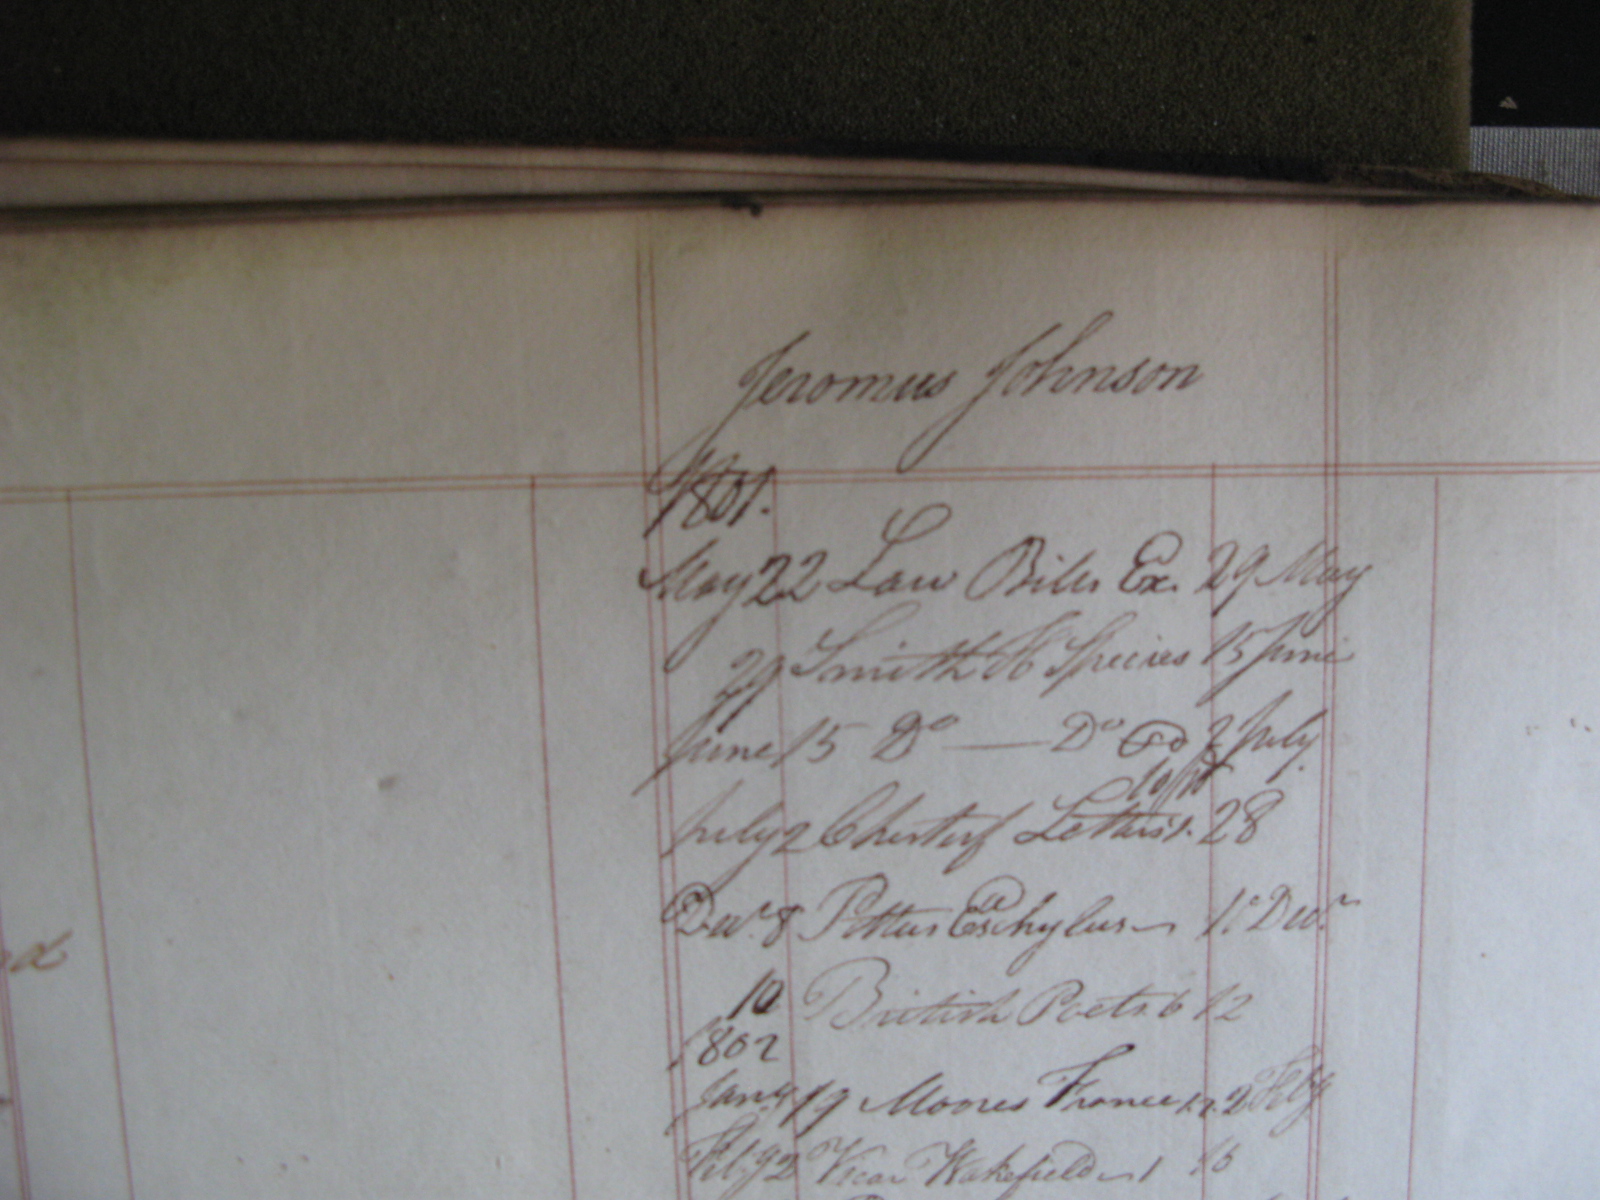 Jeromus Johnson
1801.
May 22 Law Bills Ex. 29 May
29 Smith Species 15 June
June 15 Do — Do 2 July
July 2 Chesterf Letters 1. 28
Decr. 8 Potters Eschylus 1° Decr
10 British Poets 6 12
1802
Jany 19 Moores France 1.2. 2 Feby
Feby 2 Vicar Wakefield 1 16